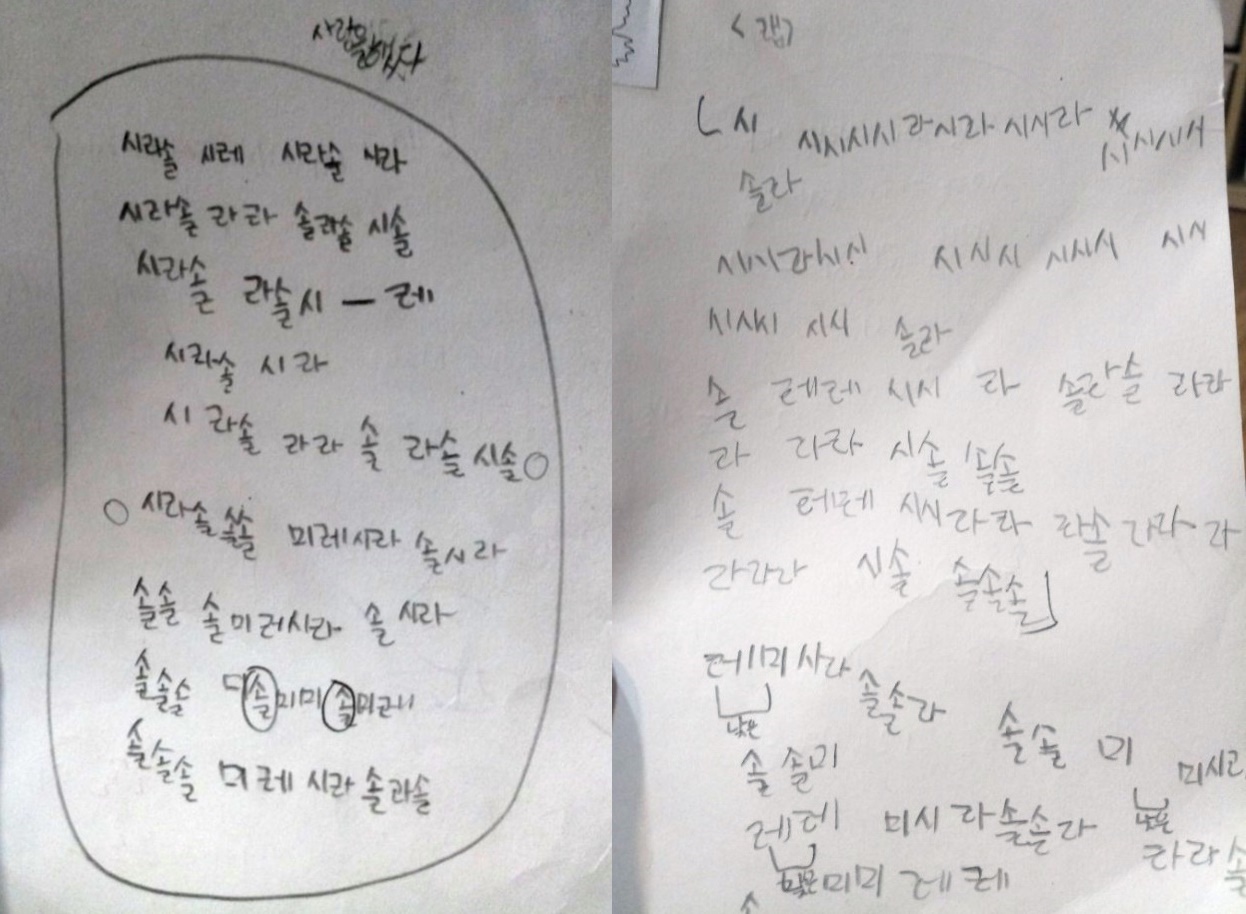 사랑을했다
시라솔 시레 시라솔 시라
시라솔 라라 솔라솔 시솔
시라솔 라솔시 — 레
시라솔 시라
시 라솔 라라 솔 라솔 시솔
시라솔솔솔 미레시라 솔시라
솔솔 솔미레시라 솔 시라
솔솔솔 미솔미미솔미레
솔솔솔 미레 시라 솔라솔
<랩>
시 시시시시라시라 시시라 시시시시
솔라
시시시라시시 시시시 시시시 시시
시시시 시시 솔라
솔 레레 시시 라 솔라솔 라라
라 라라 시솔 솔솔
솔 레레 시시라라 라솔 라라 라
라라라 시솔 솔솔솔
레미시라 솔솔라
낮은
솔솔 미 미시라
낮은
솔 솔미
레레 미시 라솔솔라
낮은 미미 레레 라라솔